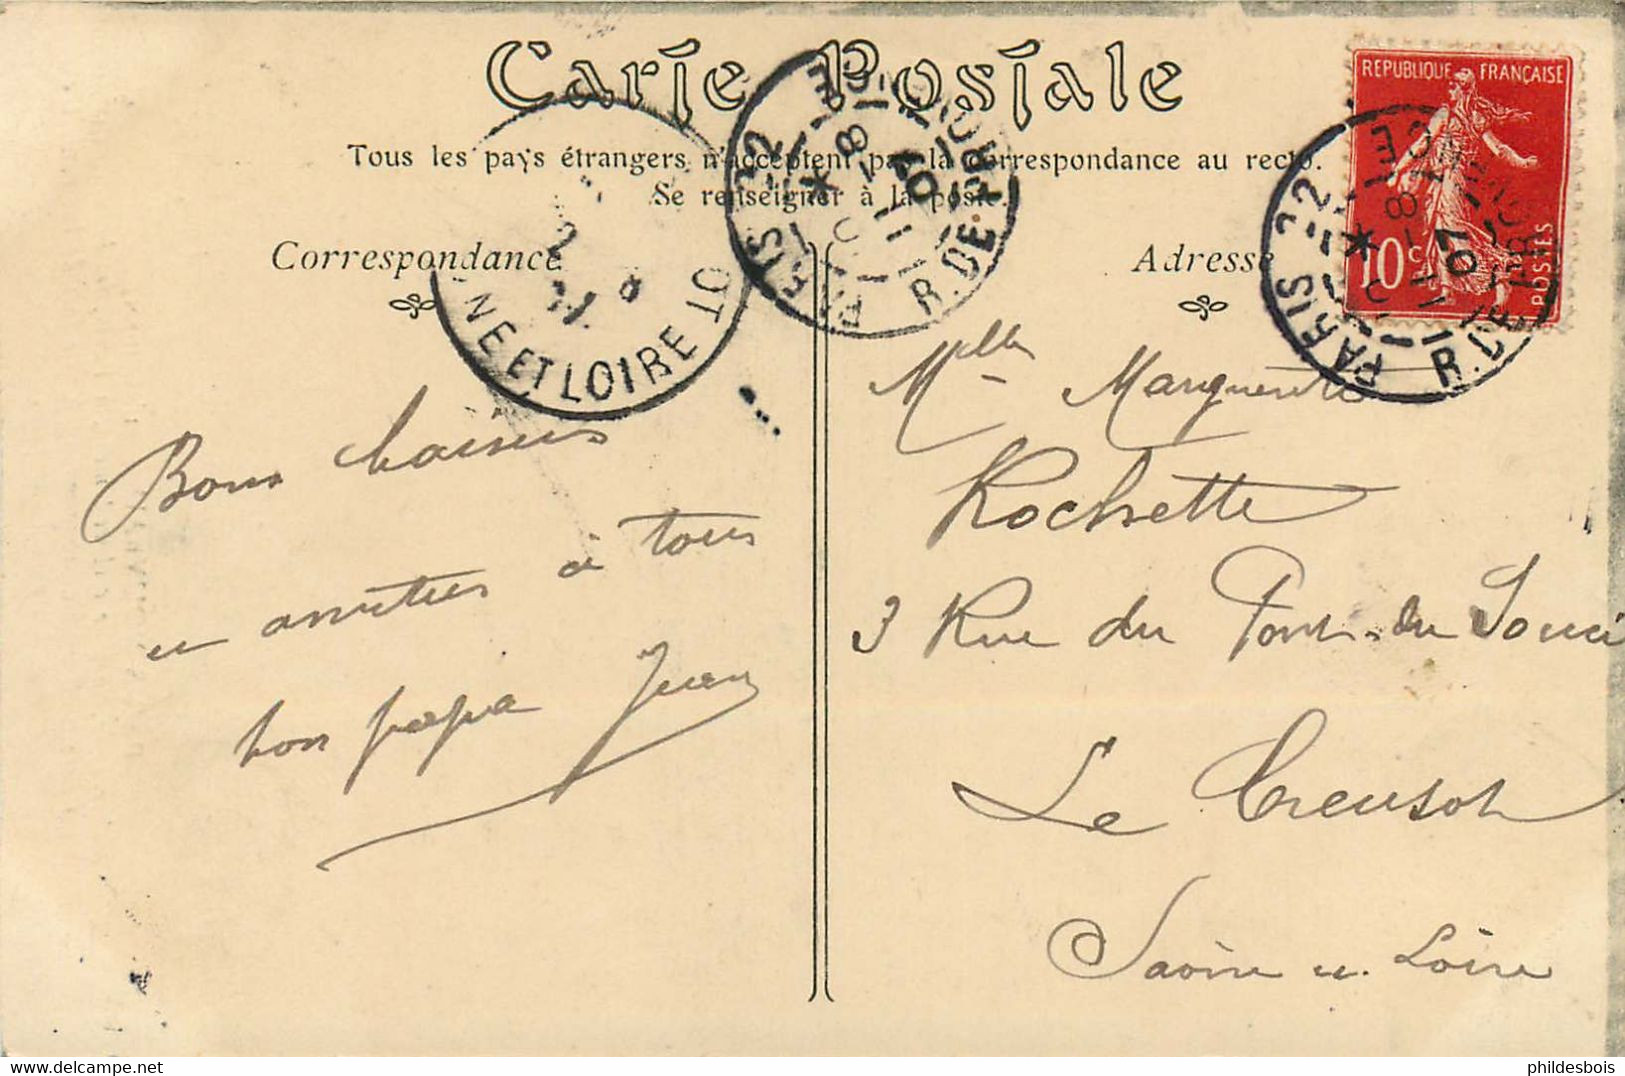 Carte Postale
Tous les pays étrangers n'acceptent pas la correspondance au recto.
Se renseigner à la poste.
Correspondance
Adresse
REPUBLIQUE FRANÇAISE
10c
POSTES
PARIS 22
R. DE PROVENCE
8
11
07
PARIS 22
R. DE PROVENCE
8
11
07
NE ET LOIRE
Bons baisers
et amitiés à tous
bon papa Jean
Mlle Marguerite
Rochette
3 Rue du Pont-du Souci
Le Creusot
Saône et Loire
phildesbois